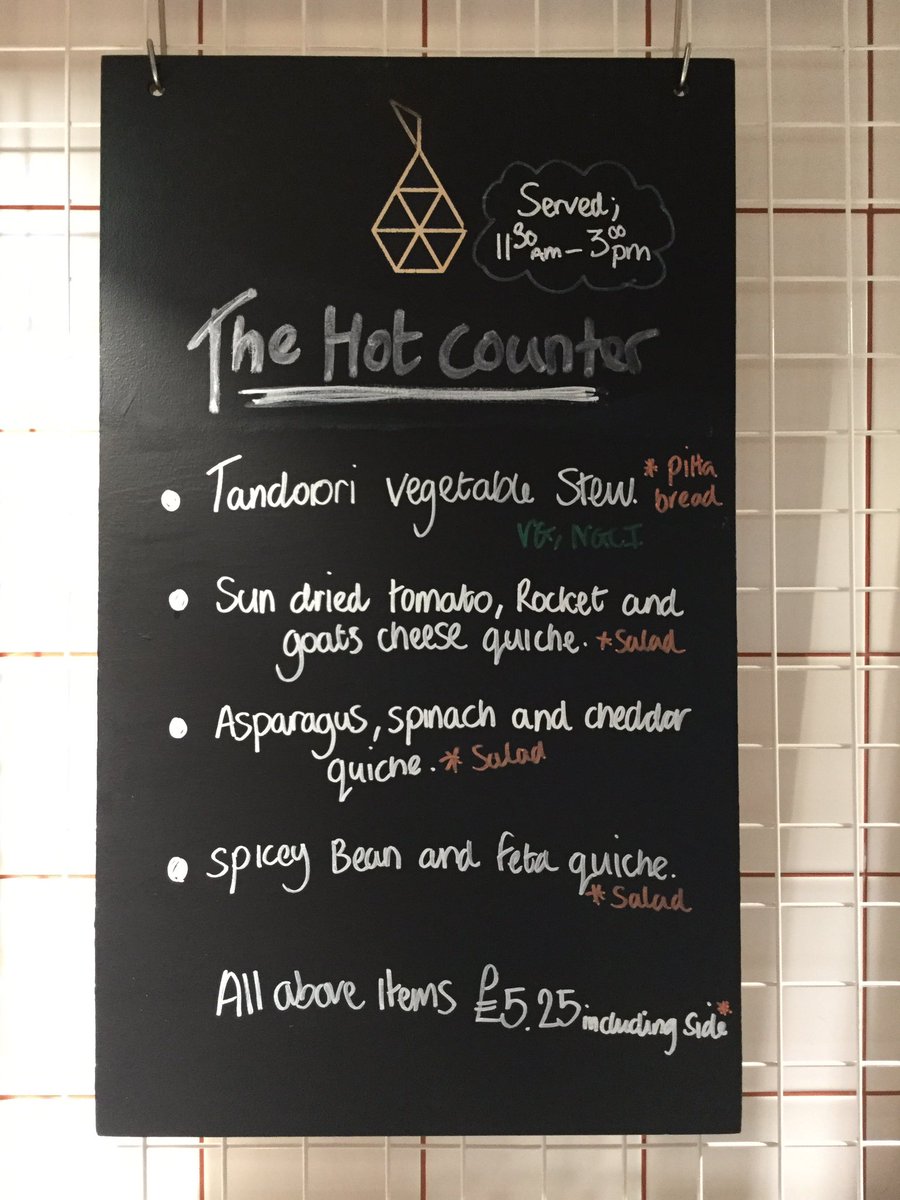 Served;
11 30 AM – 3 00 pm
The Hot Counter
• Tandoori vegetable Stew. * pitta bread
VG, NGCI
• Sun dried tomato, Rocket and
goats cheese quiche. *Salad
• Asparagus, spinach and cheddar
quiche. * Salad
• Spicey Bean and feta quiche.
*Salad
All above Items £5.25 including side*